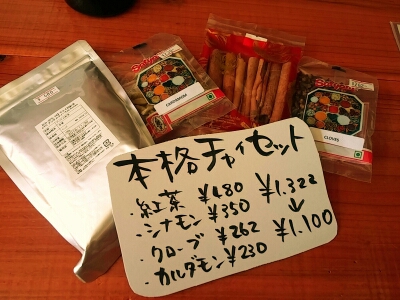 CARDAMOM
CLOVES
本格チャイセット
・紅茶 ¥480
・シナモン ¥350
・クローブ ¥262
・カルダモン ¥230
¥1.322
↓
¥1.100